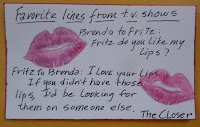 Favorite lines from t.v. shows
Brenda to Fritz:
Fritz do you like my
lips?
Fritz to Brenda: I love your lips.
If you didn't have those
lips, I'd be looking for
them on someone else.
The Closer